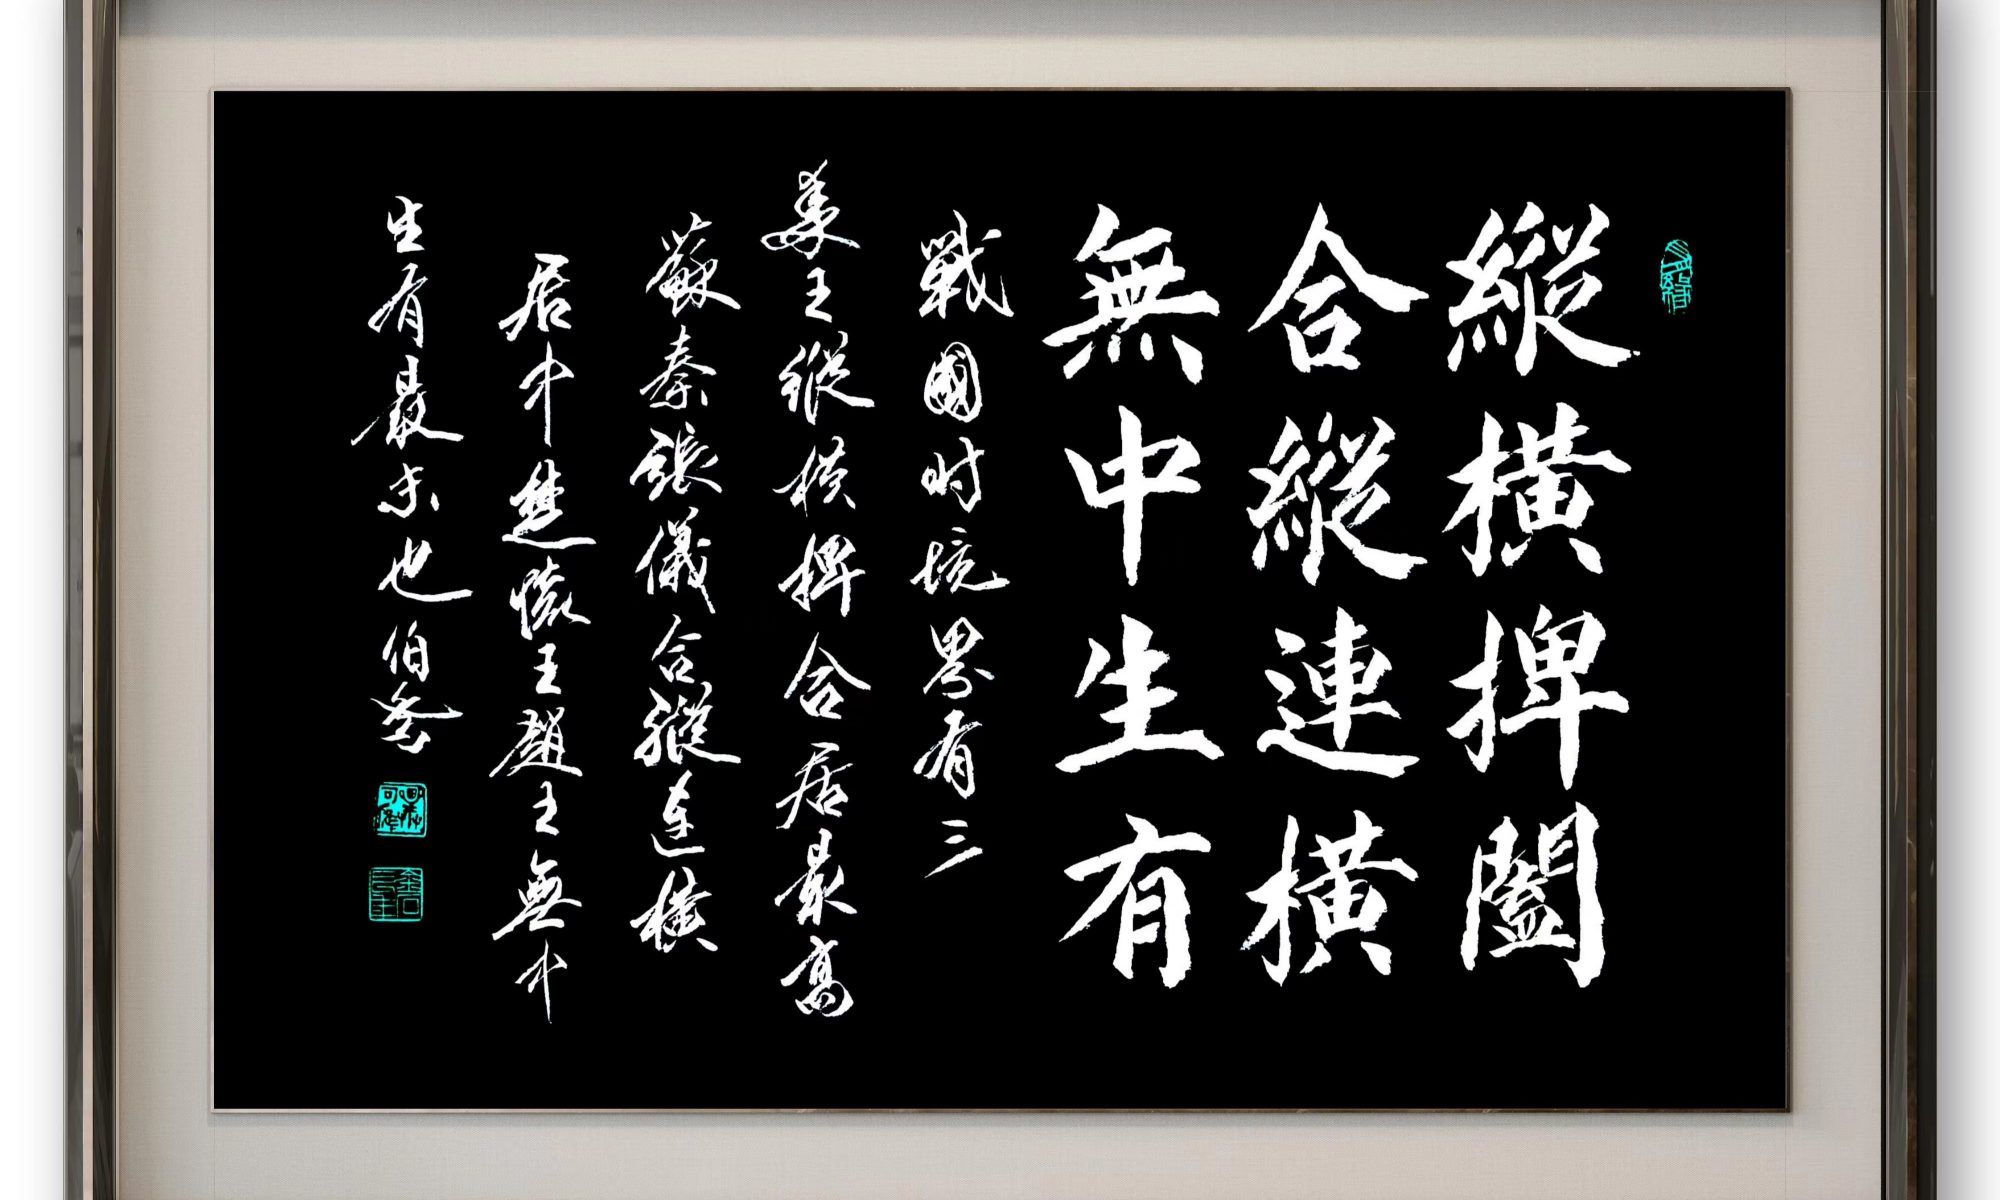 縱橫捭闔
合縱連橫
無中生有
戰國时境界有三
王縱横捭合居最高
蘇秦張儀合縱连横
居中楚懷王趙王無中
生有最末也伯